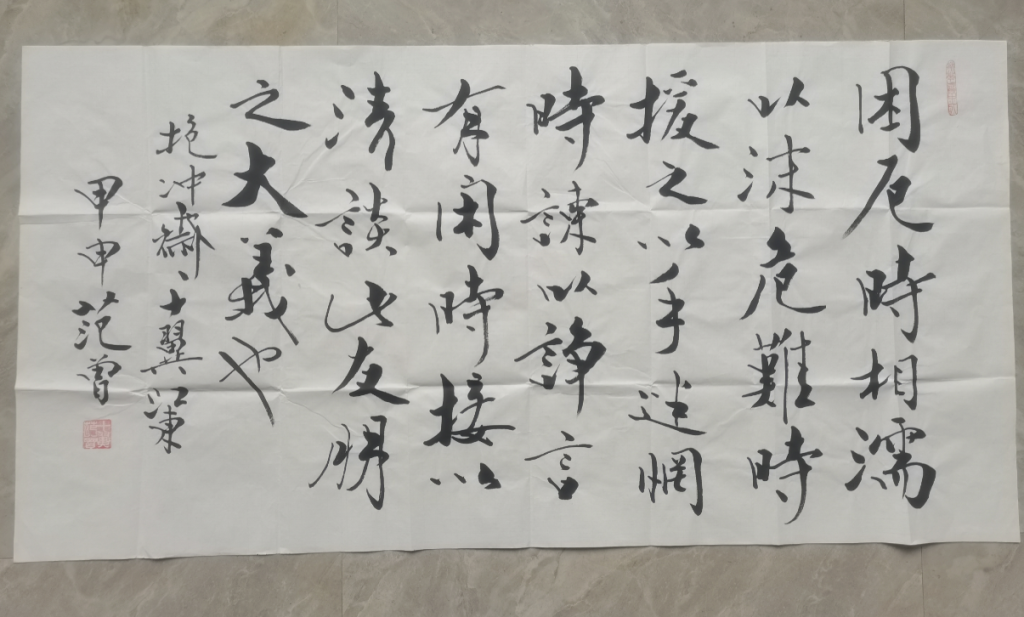 困厄時相濡
以沫危難時
援之以手迷惘
時諫以諍言
有闲時接以
清談此友朋
之大義也
抱冲齋十翼江東
甲申范曾